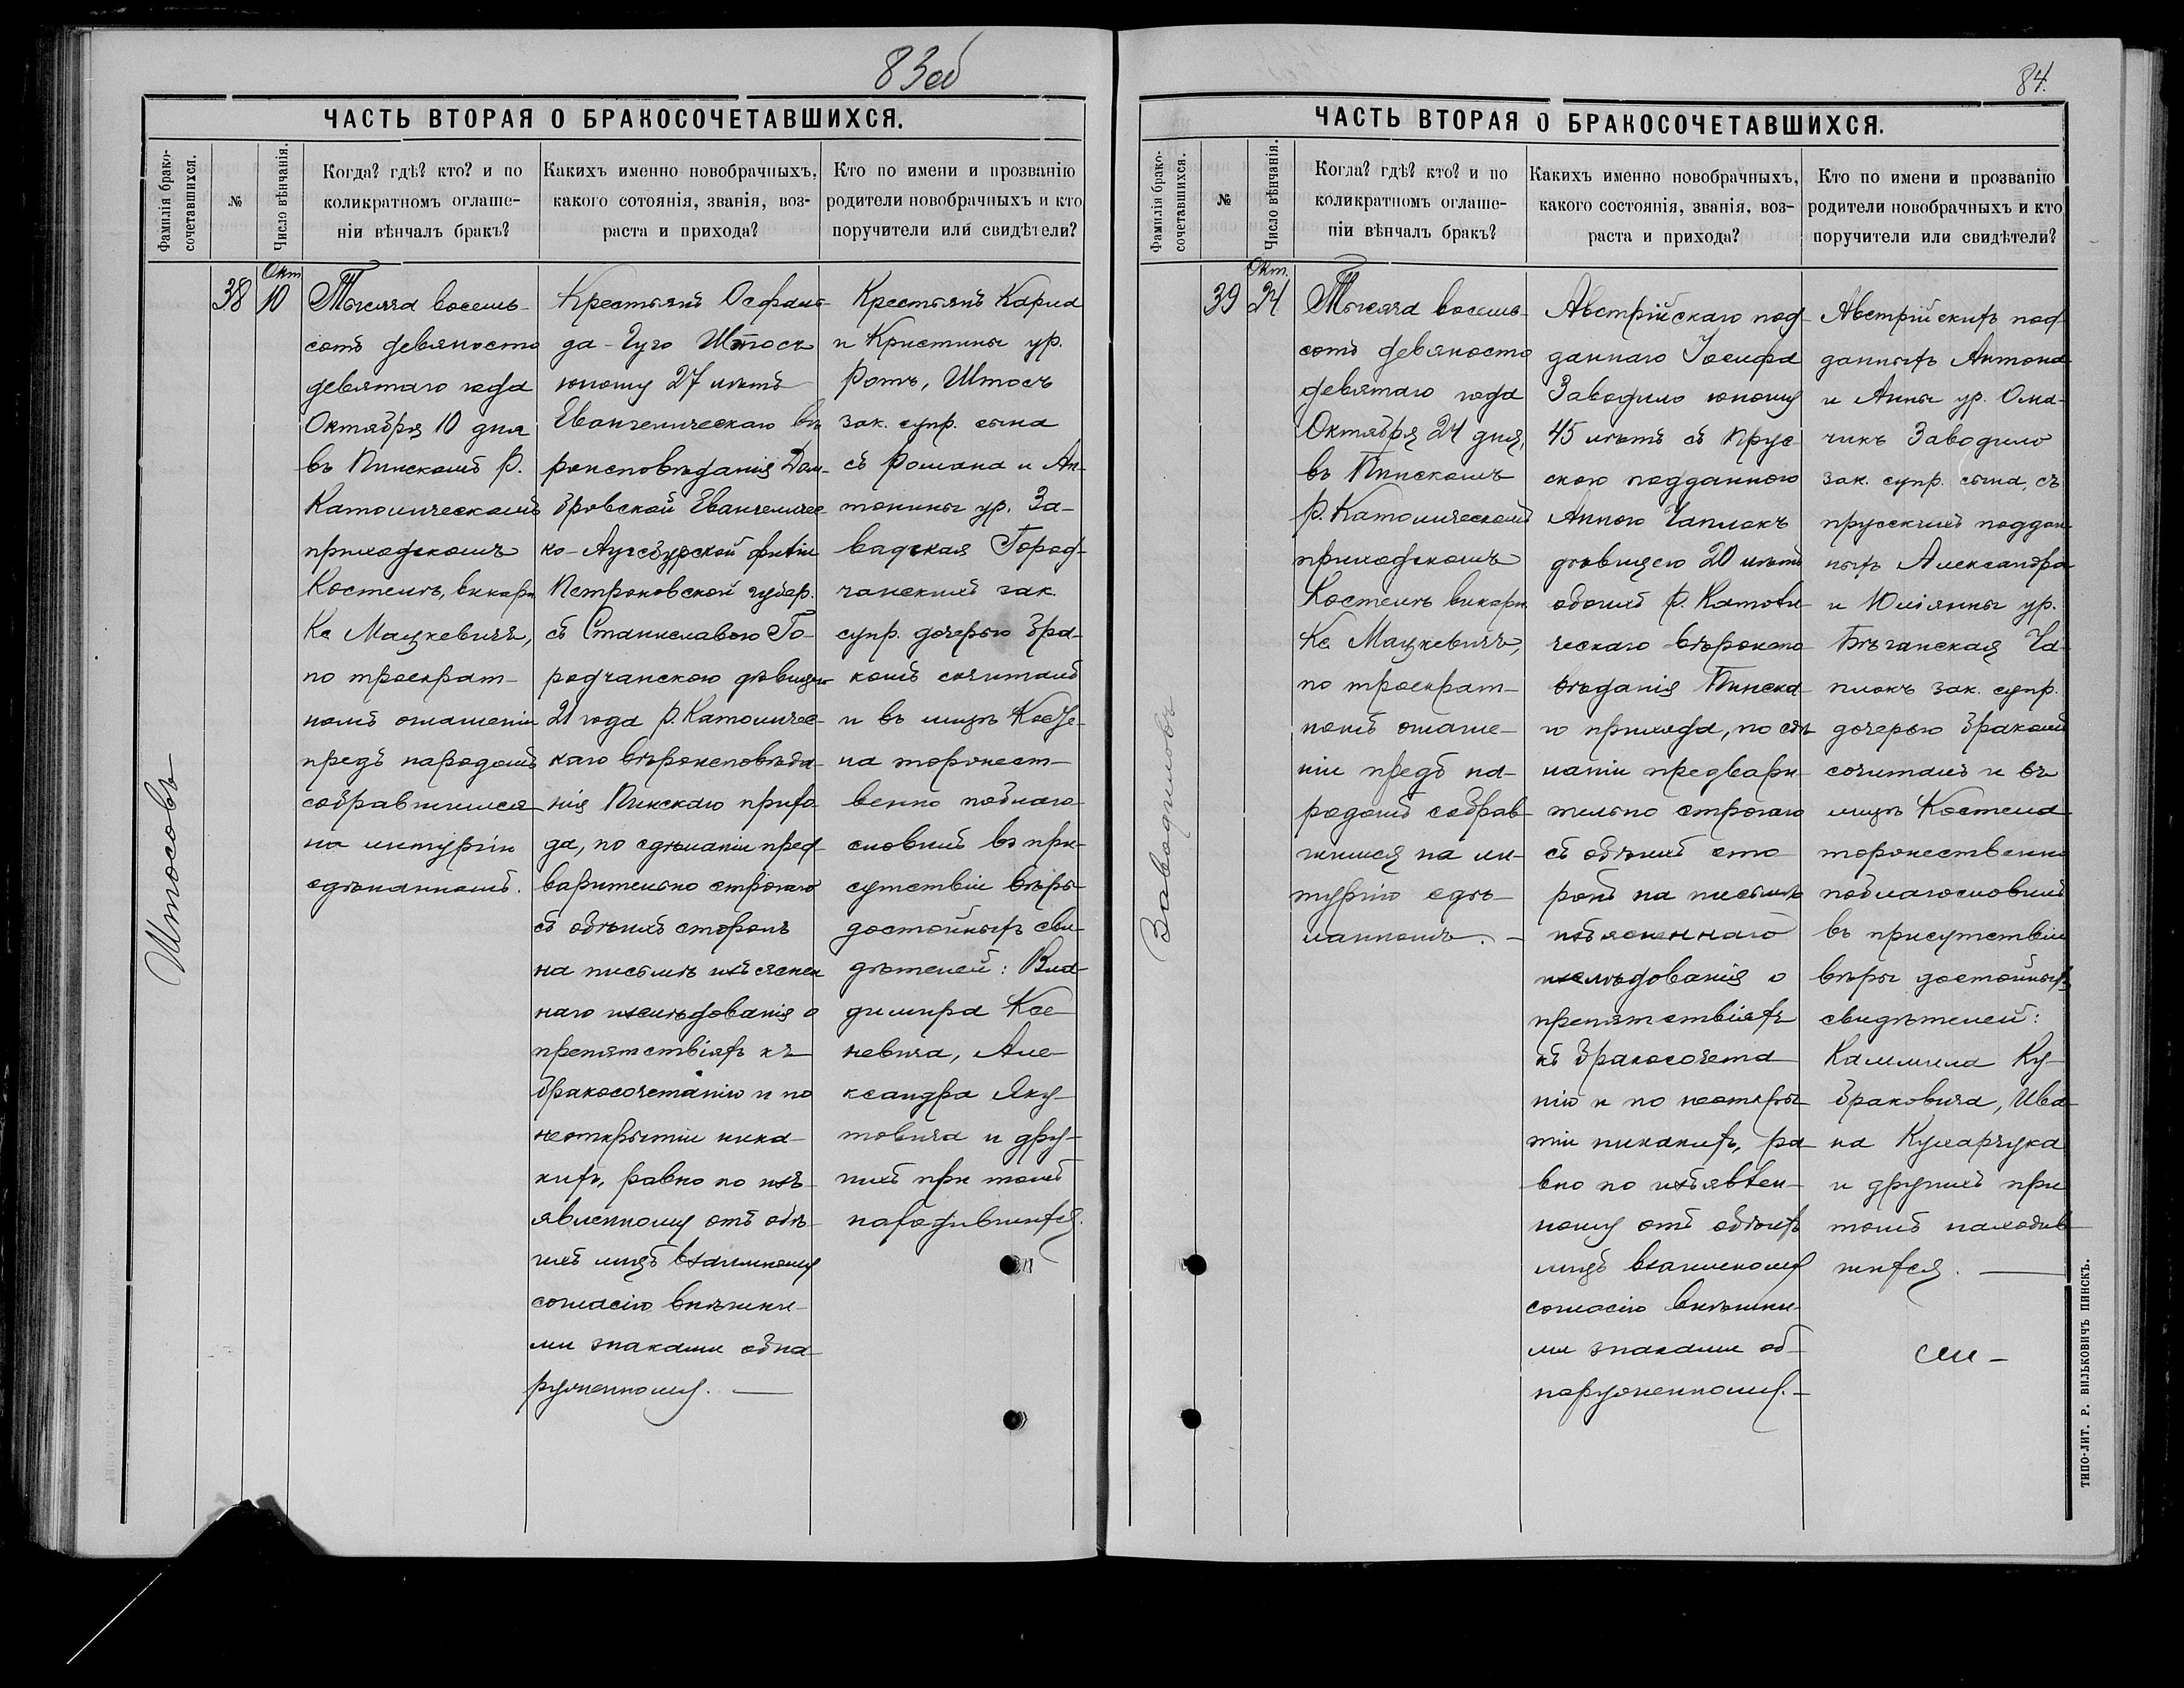 83об
ЧАСТЬ ВТОРАЯ О БРАКОСОЧЕТАВШИХСЯ.
Фамилія брако-
сочетавшихся.
№
Число вѣнчанія.
Когда? гдѣ? кто? и по
коликратномъ оглаше-
ніи вѣнчалъ бракъ?
Какихъ именно новобрачныхъ,
какого сотоянія, званія, воз-
раста и прихода?
Кто по имени и прозванію
родители новобрачныхъ и кто
поручители или свидѣтели?
Штосовъ
38
Окт.
10
Тысяча восемь-
сотъ девяносто
девятаго года
Октября 10 дня
въ Пинскомъ Р.
Католическомъ
приходскомъ
Костелѣ, викари
Кс Мацкевичъ,
по троекрат-
номъ оглашеніи
предъ народомъ
собравшимся
на литургію
сдѣланномъ.
Крестьянъ
да-Гуго Штосъ
юношу 27 лѣтъ
Евангелическаго вѣ
роисповѣданія Дом-
бровской Евангеличес
ко-Аугсбурской филіи
Петроковской губер.
съ Станиславою Го-
родчанскою дѣвицею
21 года Р. Католичес-
каго вѣроисповѣда-
нія Пинскаго прихо
да, по сдѣланіи пред-
варительно строгаго
съ обѣихъ сторонъ
на письмѣ изъяснен
наго изслѣдованія о
препятствіяхъ къ
бракосочетанію и по
неоткрытіи ника-
кихъ, равно по изъ-
явленному отъ обѣ-
ихъ лицъ взаимному
согласію внѣшни-
ми знаками обна
руженному.
Крестьянъ Карла
и Кристины ур.
Ротъ, Штосъ
зак. супр. сына
съ Романа и Ан-
тонины ур. За-
вадская Город-
чанскихъ зак.
супр. дочерью бра-
комъ сочиталъ
и въ лицѣ Косте-
ла торжест-
венно поблаго
словилъ въ при-
сутствіи вѣры
достойныхъ сви
дѣтелей: Вла-
димира Ксе-
невича, Але-
ксандра Яку-
товича и дру-
гихъ при томъ
находившихся.
84.
ЧАСТЬ ВТОРАЯ О БРАКОСОЧЕТАВШИХСЯ.
Фамилія брако-
сочетавшихся.
№
Число вѣнчанія.
Когла? гдѣ? кто? и по
коликратномъ оглаше-
ніи вѣнчалъ бракъ?
Какихъ именно новобрачныхъ,
какого состоянія, званія, воз-
раста и прихода?
Кто по имени и прозванію
родители новобрачныхъ и кто
поручители или свидѣтели?
Заводиловъ
39
Окт.
24
Тысяча восемь-
сотъ девяносто
девятаго года
Октября 24 дня,
въ Пинскомъ
Р. Католическомъ
приходскомъ
Костелѣ викари
Кс. Мацкевичъ,
по троекрат-
номъ оглаше-
ніи предъ на-
родомъ собрав-
шимся на ли-
тургію сдѣ-
ланномъ. -
Австрійскаго под-
даннаго Іосифа
Заводило юношу
45 лѣтъ съ Прус
скою подданною
Анною Чаплокъ
дѣвицею 20 лѣтъ
обоихъ Р. Католи-
ческаго вѣроиспо
вѣданія Пинска-
го прихода, по сдѣ
ланіи предвари-
тельно строгаго
съ обѣихъ сто
ронъ на письмѣ
изъясненнаго
изслѣдованія о
препятствіяхъ
къ бракосочета
нію и по неоткры-
тіи никакихъ, ра
вно по изъявлен-
ному отъ обѣихъ
лицъ взаимному
согласію внѣшни-
ми знаками об-
наруженному. -
Австрійскихъ под-
данныхъ Антона
и Анны ур.
Заводило
зак. супр. сына, съ
прусскихъ поддан
ныхъ Александра
и Юліянны ур.
Ча-
плокъ зак. супр.
дочерью бракомъ
сочиталъ и въ
лицѣ Костела
торжественно
поблагословилъ
въ присутствіи
вѣры достойныхъ
свидѣтелей:
Камилла Ку-
браковича, Ива-
на Кухарчука
и другихъ при
томъ находив
шихся.
ТИПО-ЛИТ. Р. ВИЛЬКОВИЧЪ ПИНСКЪ.